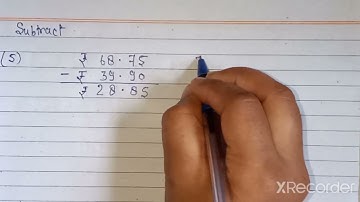 Subtract
(5) ₹ 68.75
- ₹ 39.90
₹ 28.85
XRecorder